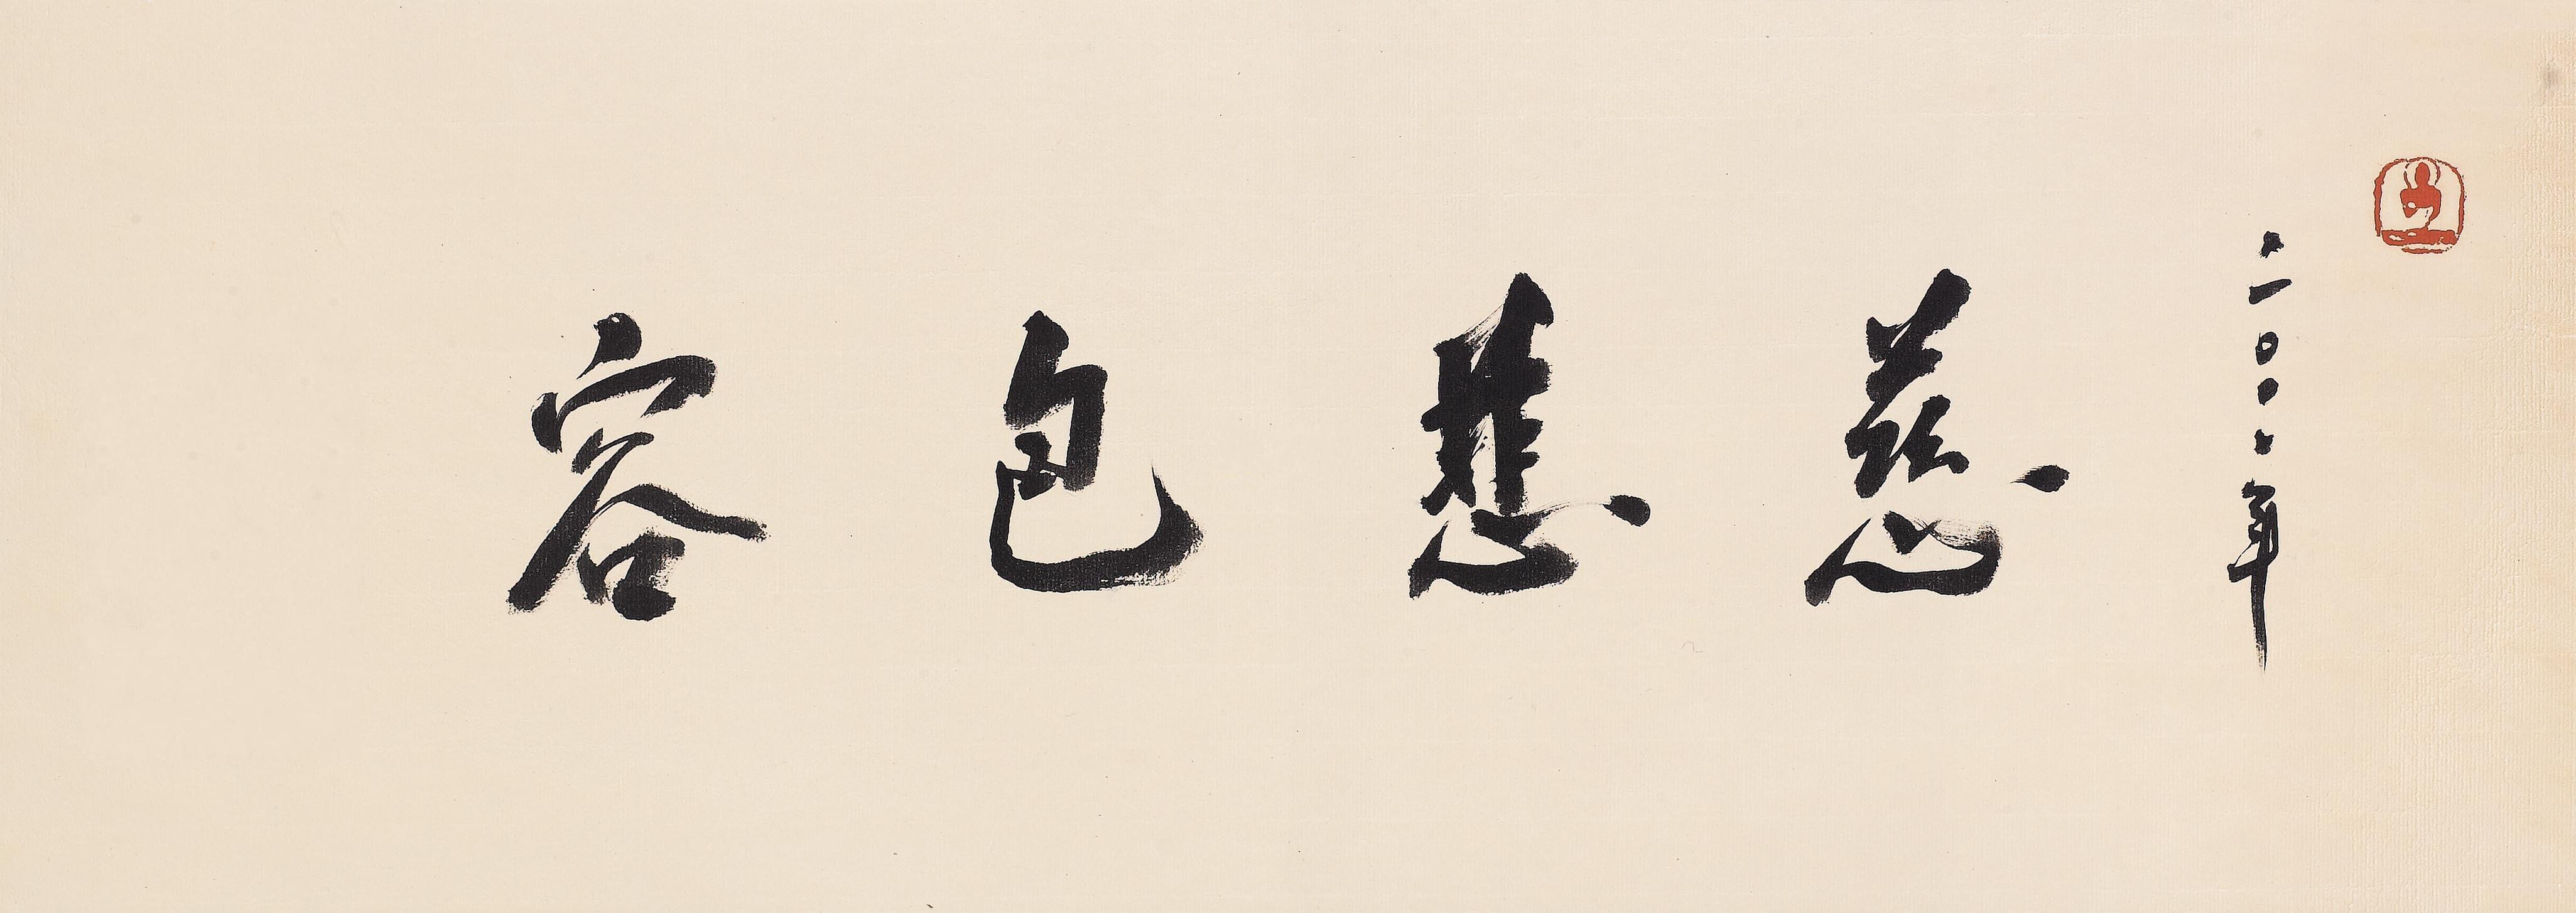 二〇〇二年
慈悲包容